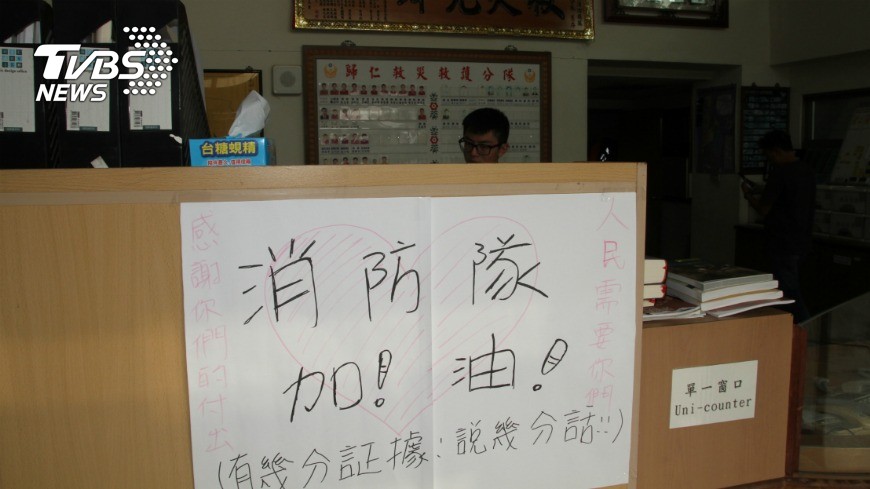 TVBS
NEWS
歸仁救災救護分隊
台糖蜆精
感謝你們的付出
消防隊
加!油!
(有幾分証據:說幾分話!!)
人民需要你們
單一窗口
Uni-counter